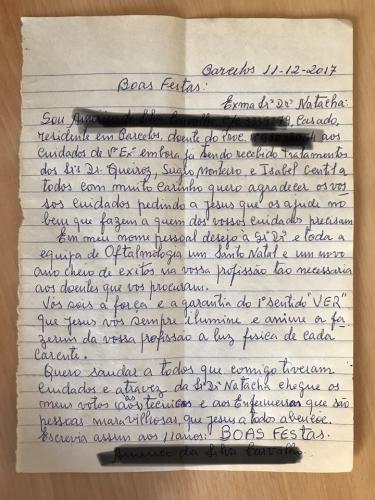 Barcelos 11-12-2017
BOAS FESTAS:
Exma Srª Drª Natacha:
Sou Casado,
residente em Barcelos, doente do Proc. aos
cuidados de Vª Exª embora já tendo recebido tratamentos
dos Srs Dr. Queiroz, Sugro Monteiro e Isabel Gentil a
todos com muito carinho quero agradecer os vos-
sos cuidados pedindo a Jesus que os ajude no
bem que fazem a quem dos vossos cuidados precisam
Em meu nome pessoal desejo à Srª Drª e toda a
equipa de Oftalmologia um Santo Natal e um novo
ano cheio de exitos na vossa profissão tão necessaria
aos doentes que vos procuram.
Vós sois a força e a garantia do 1º sentido "VER"
que Jesus vos sempre ilumine e anime a fa-
zerem da vossa profissão a luz fisica de cada
carente.
Quero saudar a todos que comigo tiveram
cuidados e atravez da Srª Drª Natacha chegue os
meus votos aos técnicos e aos Enfermeiros que são
pessoas maravilhosas, que Jesus a todos abençoe.
Escrevia assim aos 11 anos: BOAS FESTAS.